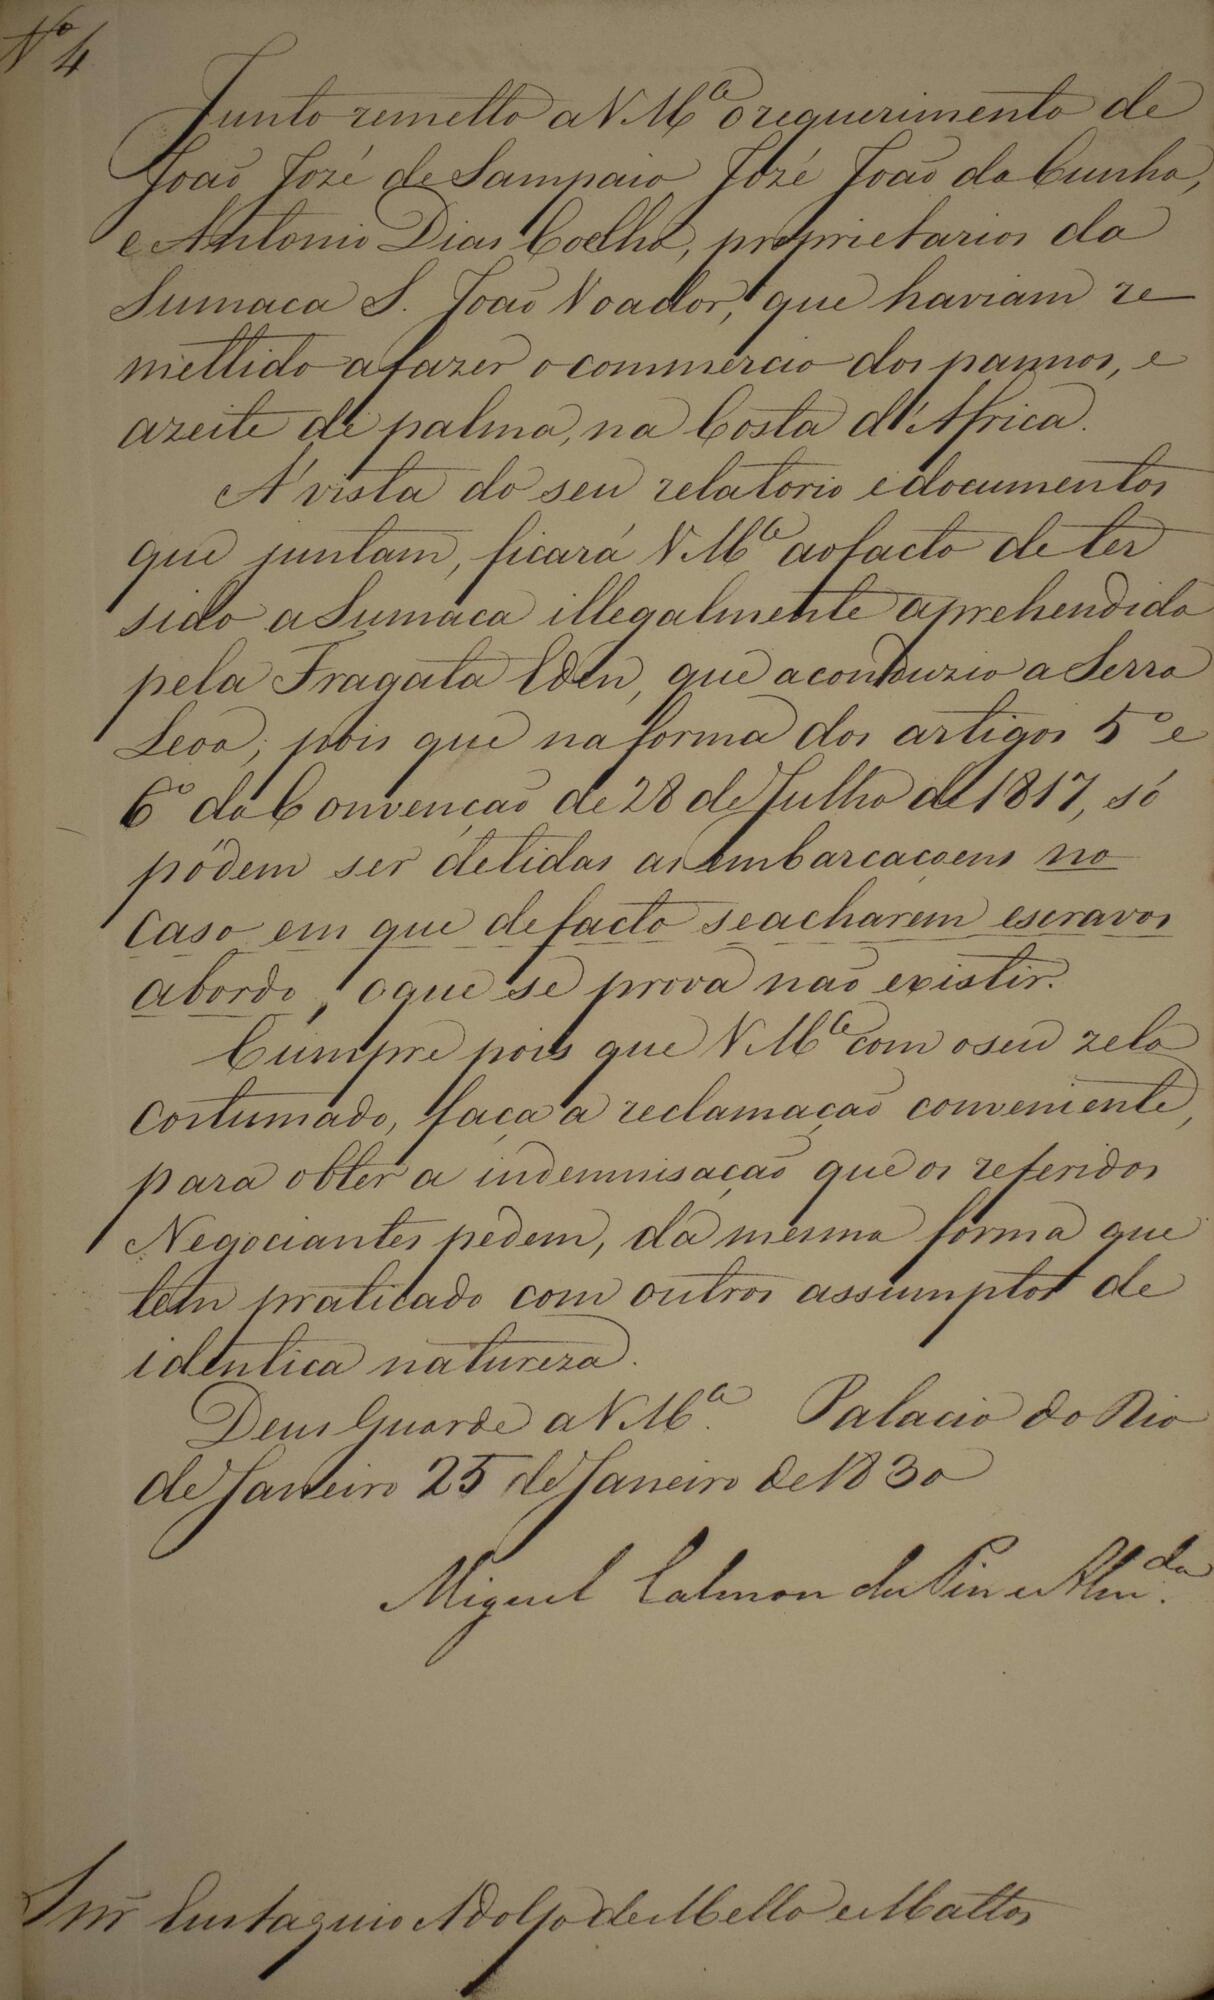 Nº 4
Junto remetto a V Mce o requerimento de
João José de Sampaio, José João da Cunha,
e Antonio Dias Coelho, proprietarios da
Sumaca S. João Voador, que haviam re
mettido a fazer o commercio dos pannos, e
azeite de palma, na Costa d'Africa.
A' vista do seu relatorio e documentos
que juntam, ficará V Mce ao facto de ter
sido a Sumaca illegalmente aprehendida
pela Fragata Eden, que a conduzio a Serra
Leoa; pois que na forma dos artigos 5º e
6º da Convenção de 28 de Julho de 1817, só
pódem ser detidas as embarcaçoens no
caso em que de facto se acharem escravos
a bordo, o que se prova não existir.
Cumpre pois que V Mce com o seu zelo
costumado, faça a reclamação conveniente,
para obter a indemnisação que os referidos
Negociantes pedem, da mesma forma que
tem praticado com outros assumptos de
identica natureza.
Deus Guarde a V Mce. Palacio do Rio
de Janeiro 25 de Janeiro de 1830
Miguel Calmon du Pin e Almda.
Snr Eustaquio Adolfo de Mello e Mattos